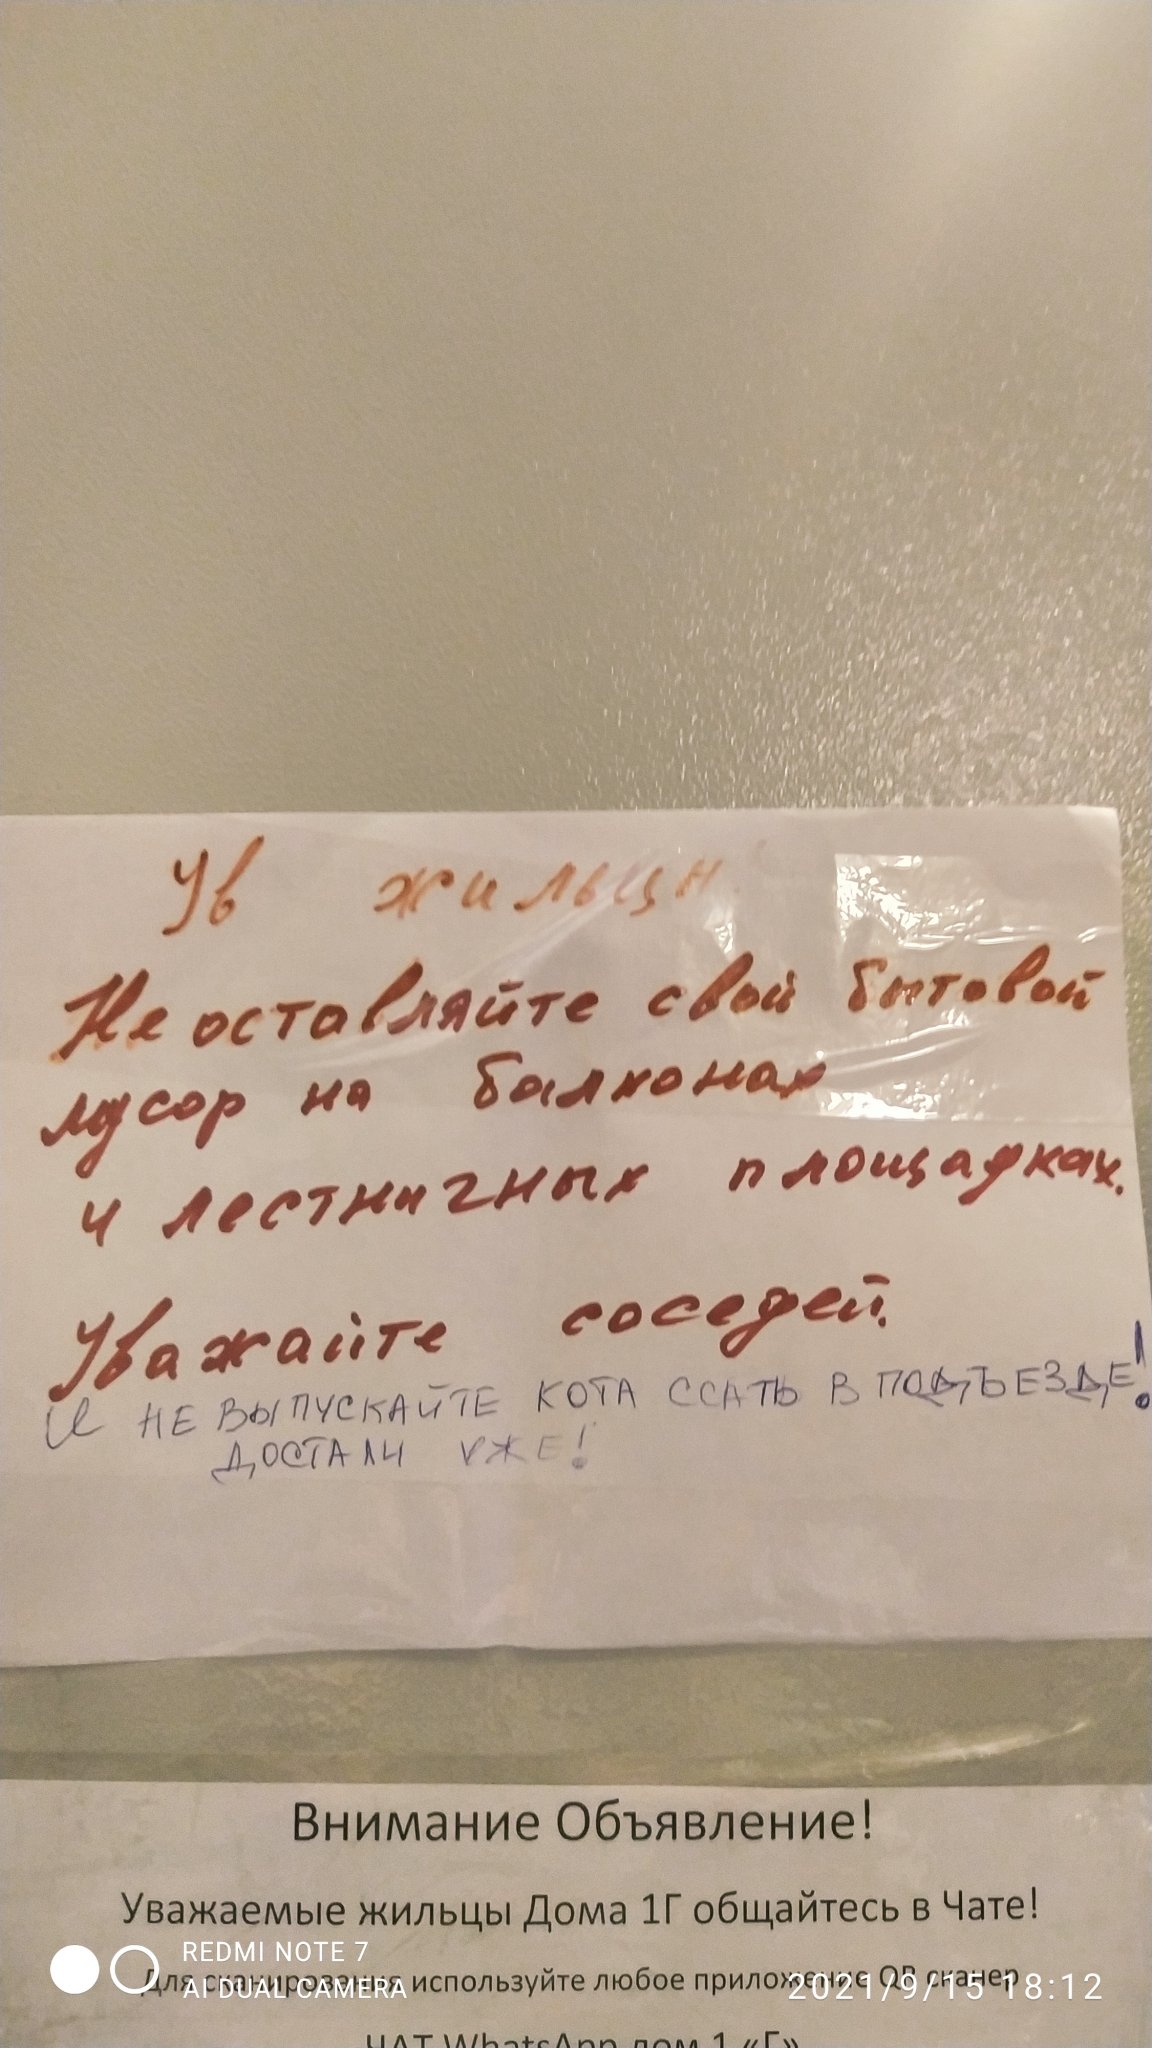 Ув жильцы
Не оставляйте свой бытовой
мусор на балконах
и лестничных площадках.
Уважайте соседей.
И НЕ ВЫПУСКАЙТЕ КОТА ССАТЬ В ПОДЪЕЗДЕ!
ДОСТАЛИ УЖЕ!
Внимание Объявление!
Уважаемые жильцы Дома 1Г общайтесь в Чате!
Для сканирования используйте любое приложение QR сканер
ЧАТ WhatsApp дом 1 «Г»
REDMI NOTE 7
AI DUAL CAMERA
2021/9/15 18:12